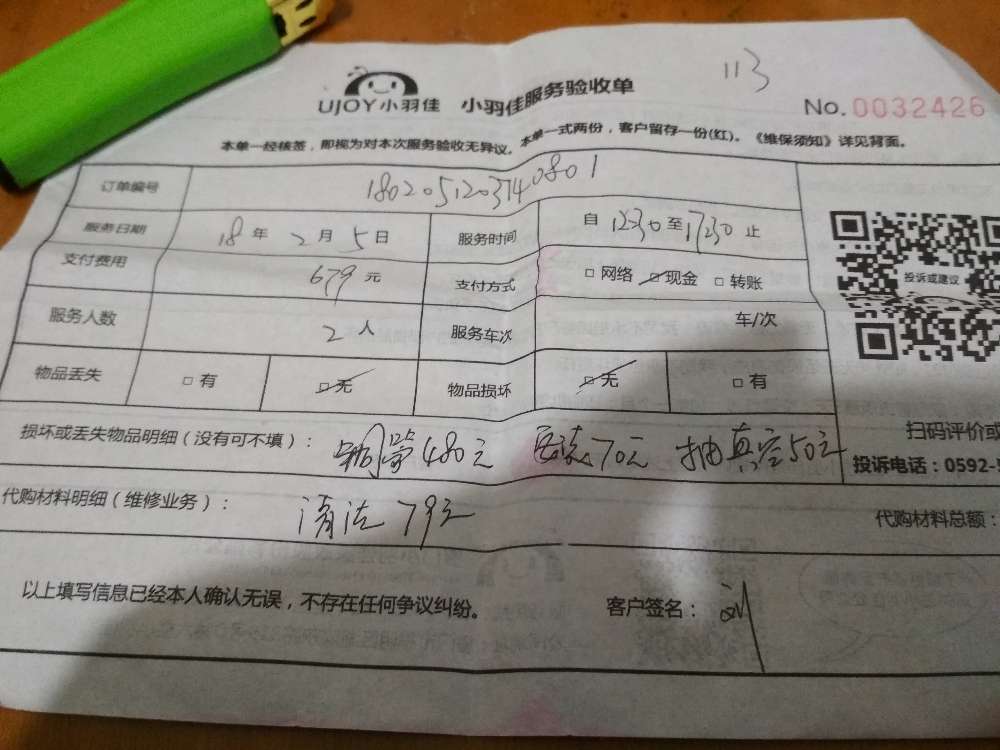 113
UJOY小羽佳 小羽佳服务验收单
No. 0032426
本单一经核签，即视为对本次服务验收无异议。本单一式两份，客户留存一份(红)。《维保须知》详见背面。
订单编号 1802051203740801
服务日期 18年 2月 5日 服务时间 自 1230 至 1730 止
支付费用 679元 支付方式 □ 网络 □ 现金 □ 转账
投诉或建议
服务人数 2人 服务车次 车/次
物品丢失 □ 有 □ 无 物品损坏 □ 无 □ 有
扫码评价或
损坏或丢失物品明细（没有可不填）： 铜管480元 70元 抽真空50元
投诉电话：0592-
代购材料明细（维修业务）： 清洗79元
代购材料总额：
以上填写信息已经本人确认无误，不存在任何争议纠纷。 客户签名：